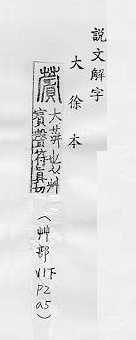 說文解字
大徐本
薲
大蓱也从艸
賓聲符眞切
(艸部 V1下 P2 a5)